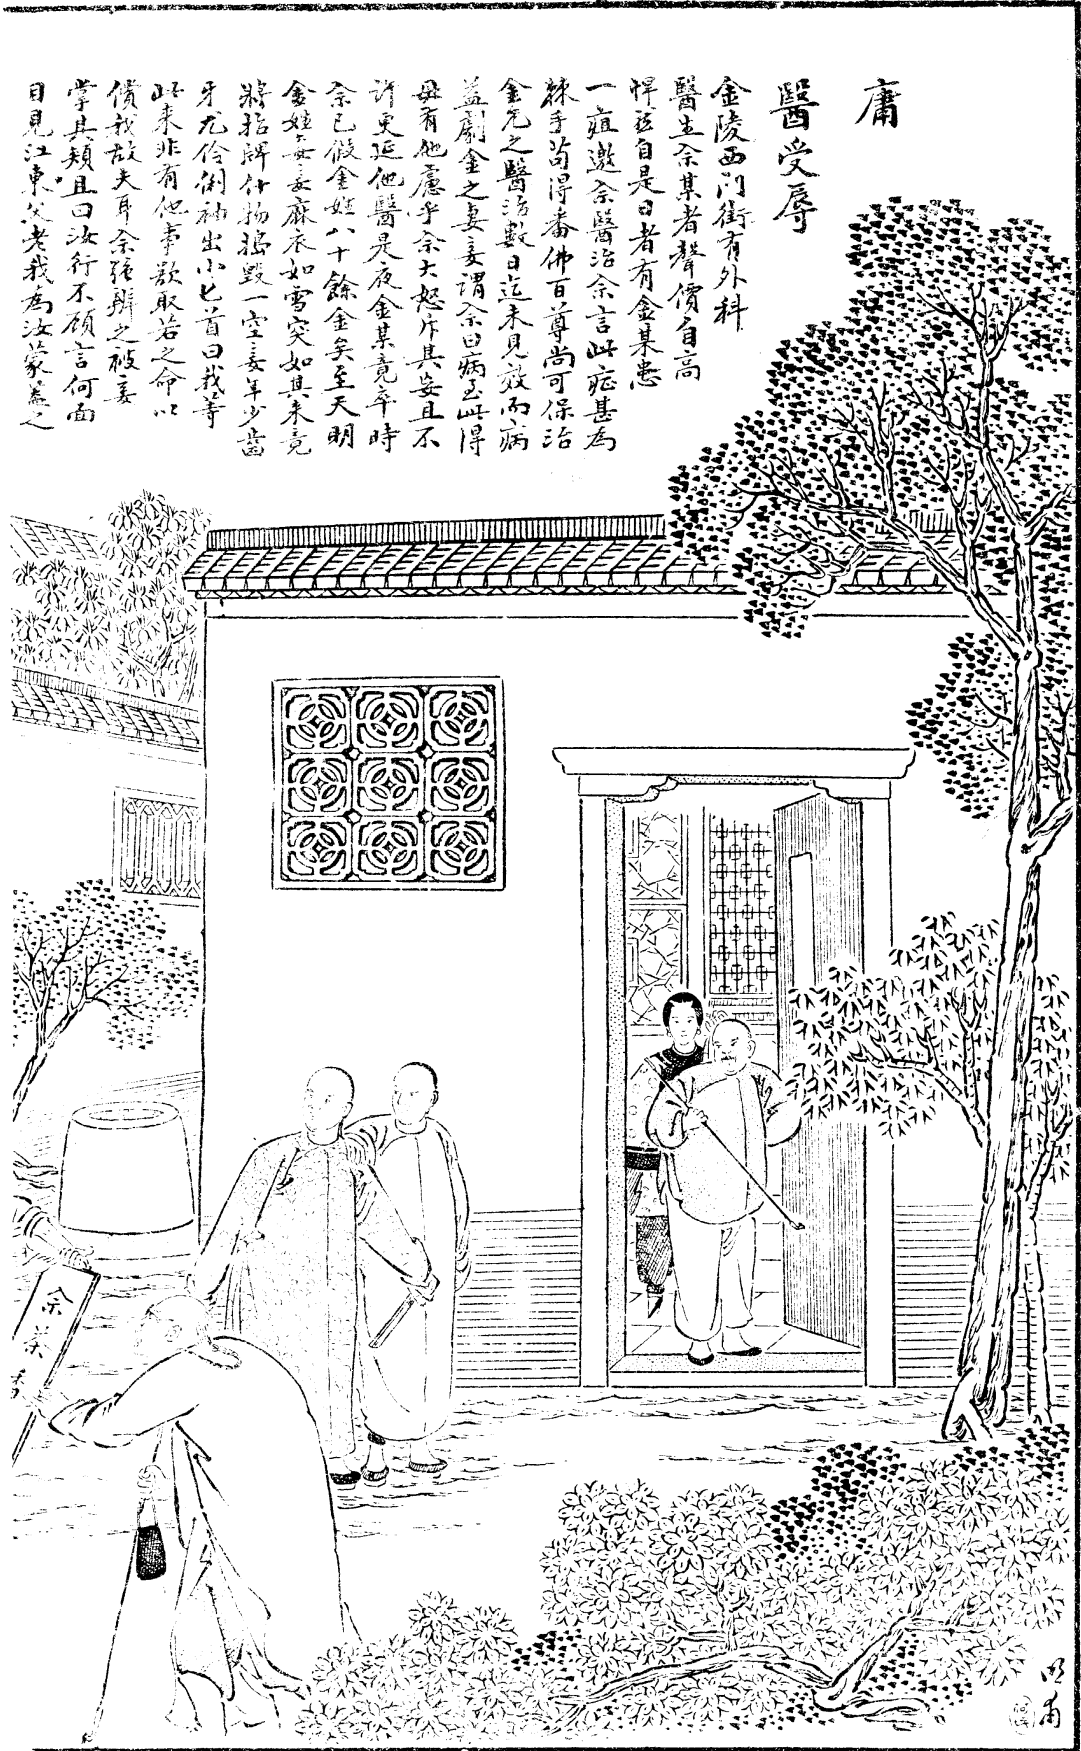 庸
醫受辱
金陵西門街有外科
醫生余某者聲價自高
悍然自是日者有金某患
一疽邀余醫治余言此症甚為
棘手苟得番佛百尊尚可保治
金允之醫治數日迄未見效而病
益劇金之妻妾謂余曰病至此得
毋有他慮乎余大怒斥其妄且不
許更延他醫是夜金某竟卒時
余已假金姓八十餘金矣至天明
金姓妻妾麻衣如雪突如其來竟
將招牌什物搗毀一空妾年少齒
牙尤伶俐袖出小匕首曰我等
此來非有他事欲取若之命以
償我故夫耳余強辯之被妾
掌其頰且曰汝行不顧言何面
目見江東父老我為汝蒙羞之
余某
明甫